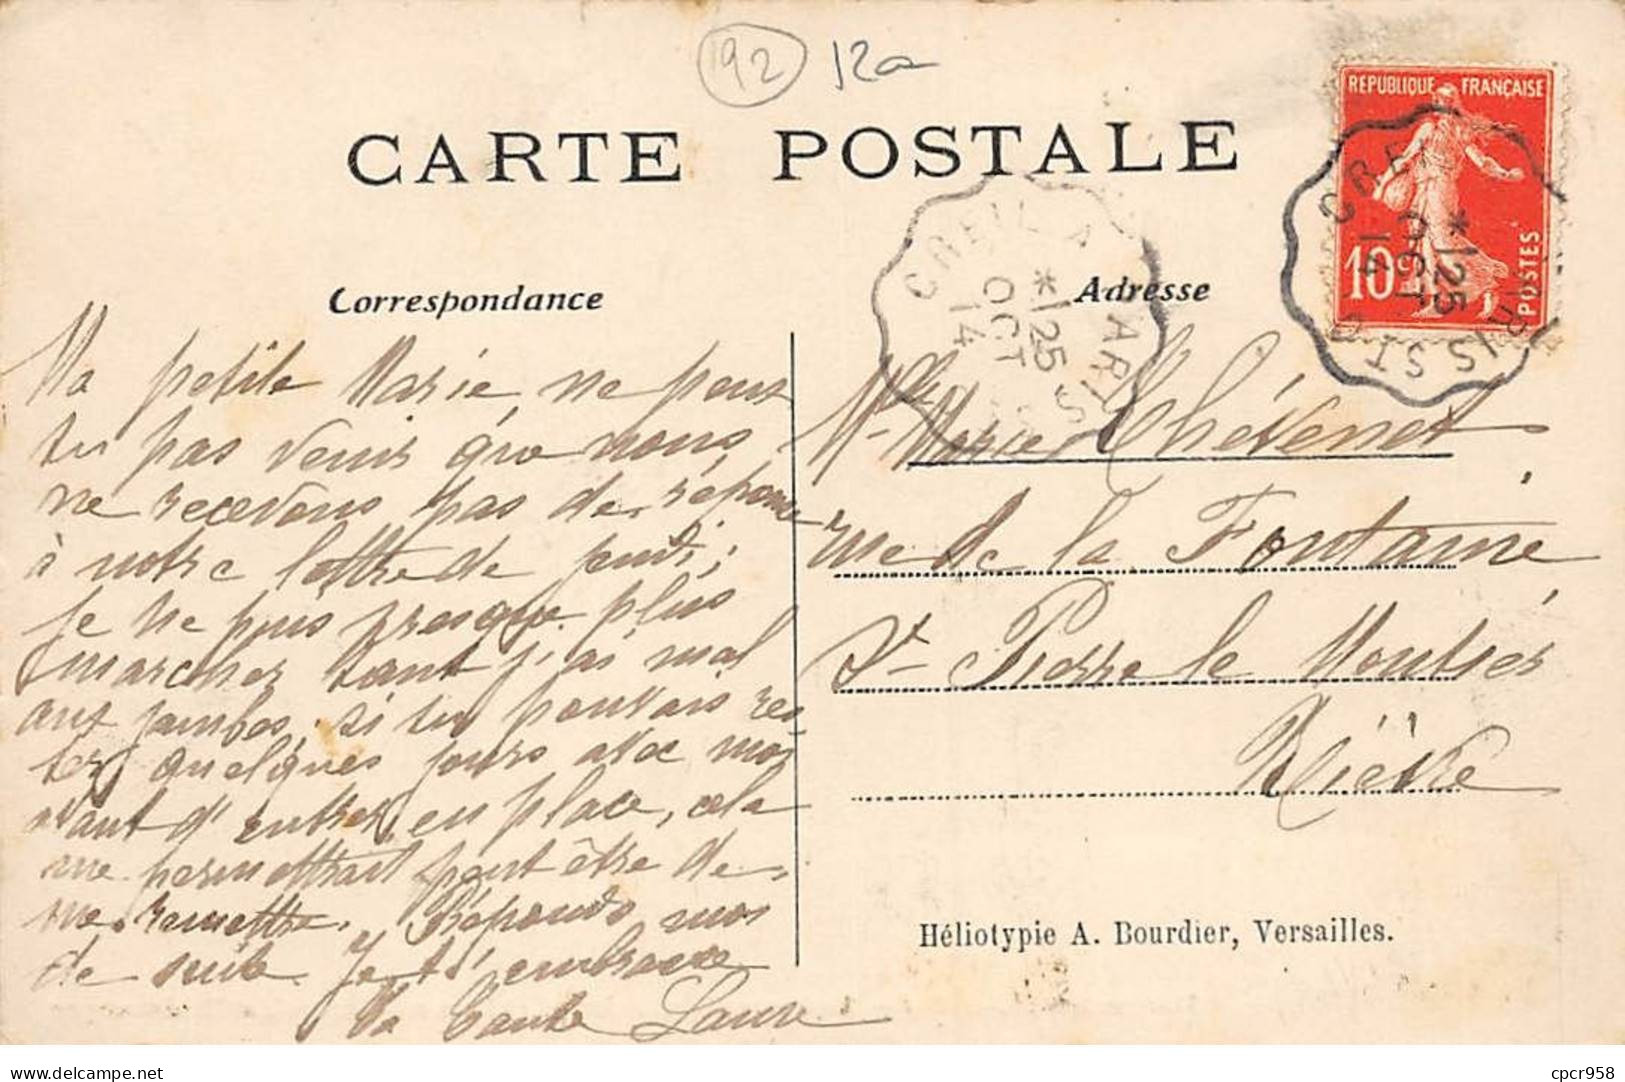 192 12a
CARTE POSTALE
REPUBLIQUE FRANÇAISE
10c POSTES
CREIL A PARIS ST
*1 25
OCT
14
CREIL A PARIS ST D
*1 25
OCT
14
Correspondance
Ma petite Marie ne peux
tu pas venir que nous
ne recevons pas de réponse
à notre lettre de jeudi;
je ne puis presque plus
marcher tant j'ai mal
aux jambes, si tu pouvais res
ter quelques jours avec moi
avant d'entrer en place, cela
me permettrait peut être de
me remettre. Réponds moi
de suite. Je t'embrasse
Ta tante Laure
Adresse
Mlle Marie Thévenet
rue de la Fontaine
St Pierre le Moutier
Nièvre
Héliotypie A. Bourdier, Versailles.
delcampe.net
cpcr958